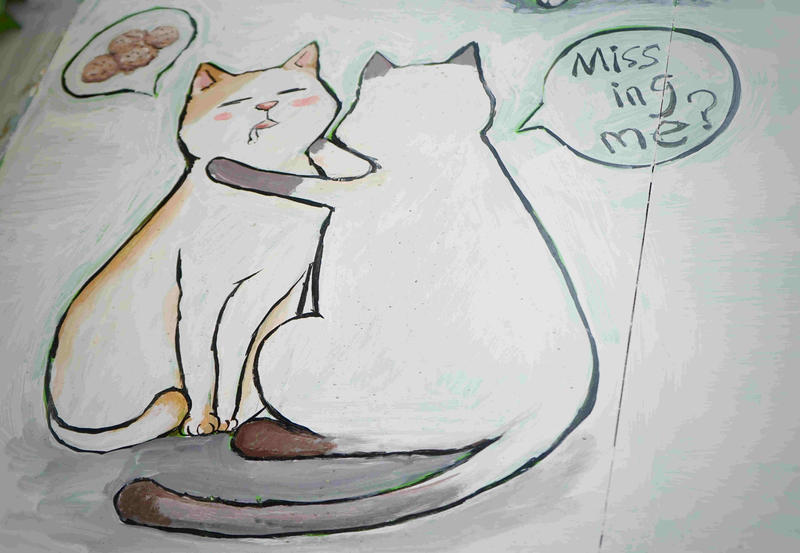 Miss
ing
me?